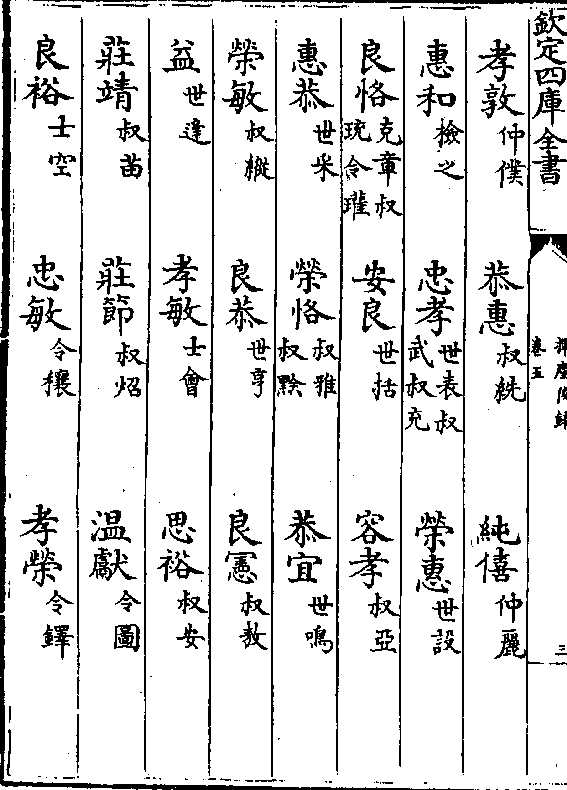 欽定四庫全書
卷五
三
孝敦仲僕 恭惠叔絖 純僖仲麗
惠和檢之 忠孝世表叔武叔充 榮惠世設
良恪克章叔琉令瓘 安良世括 容孝叔亞
惠恭世采 榮恪叔雅叔黥 恭宜世鳴
榮敏叔樅 良恭世亨 良憲叔敖
益世逢 孝敏士會 思裕叔安
莊靖叔苗 莊節叔炤 温獻令圖
良裕士空 忠敏令穰 孝榮令鐸